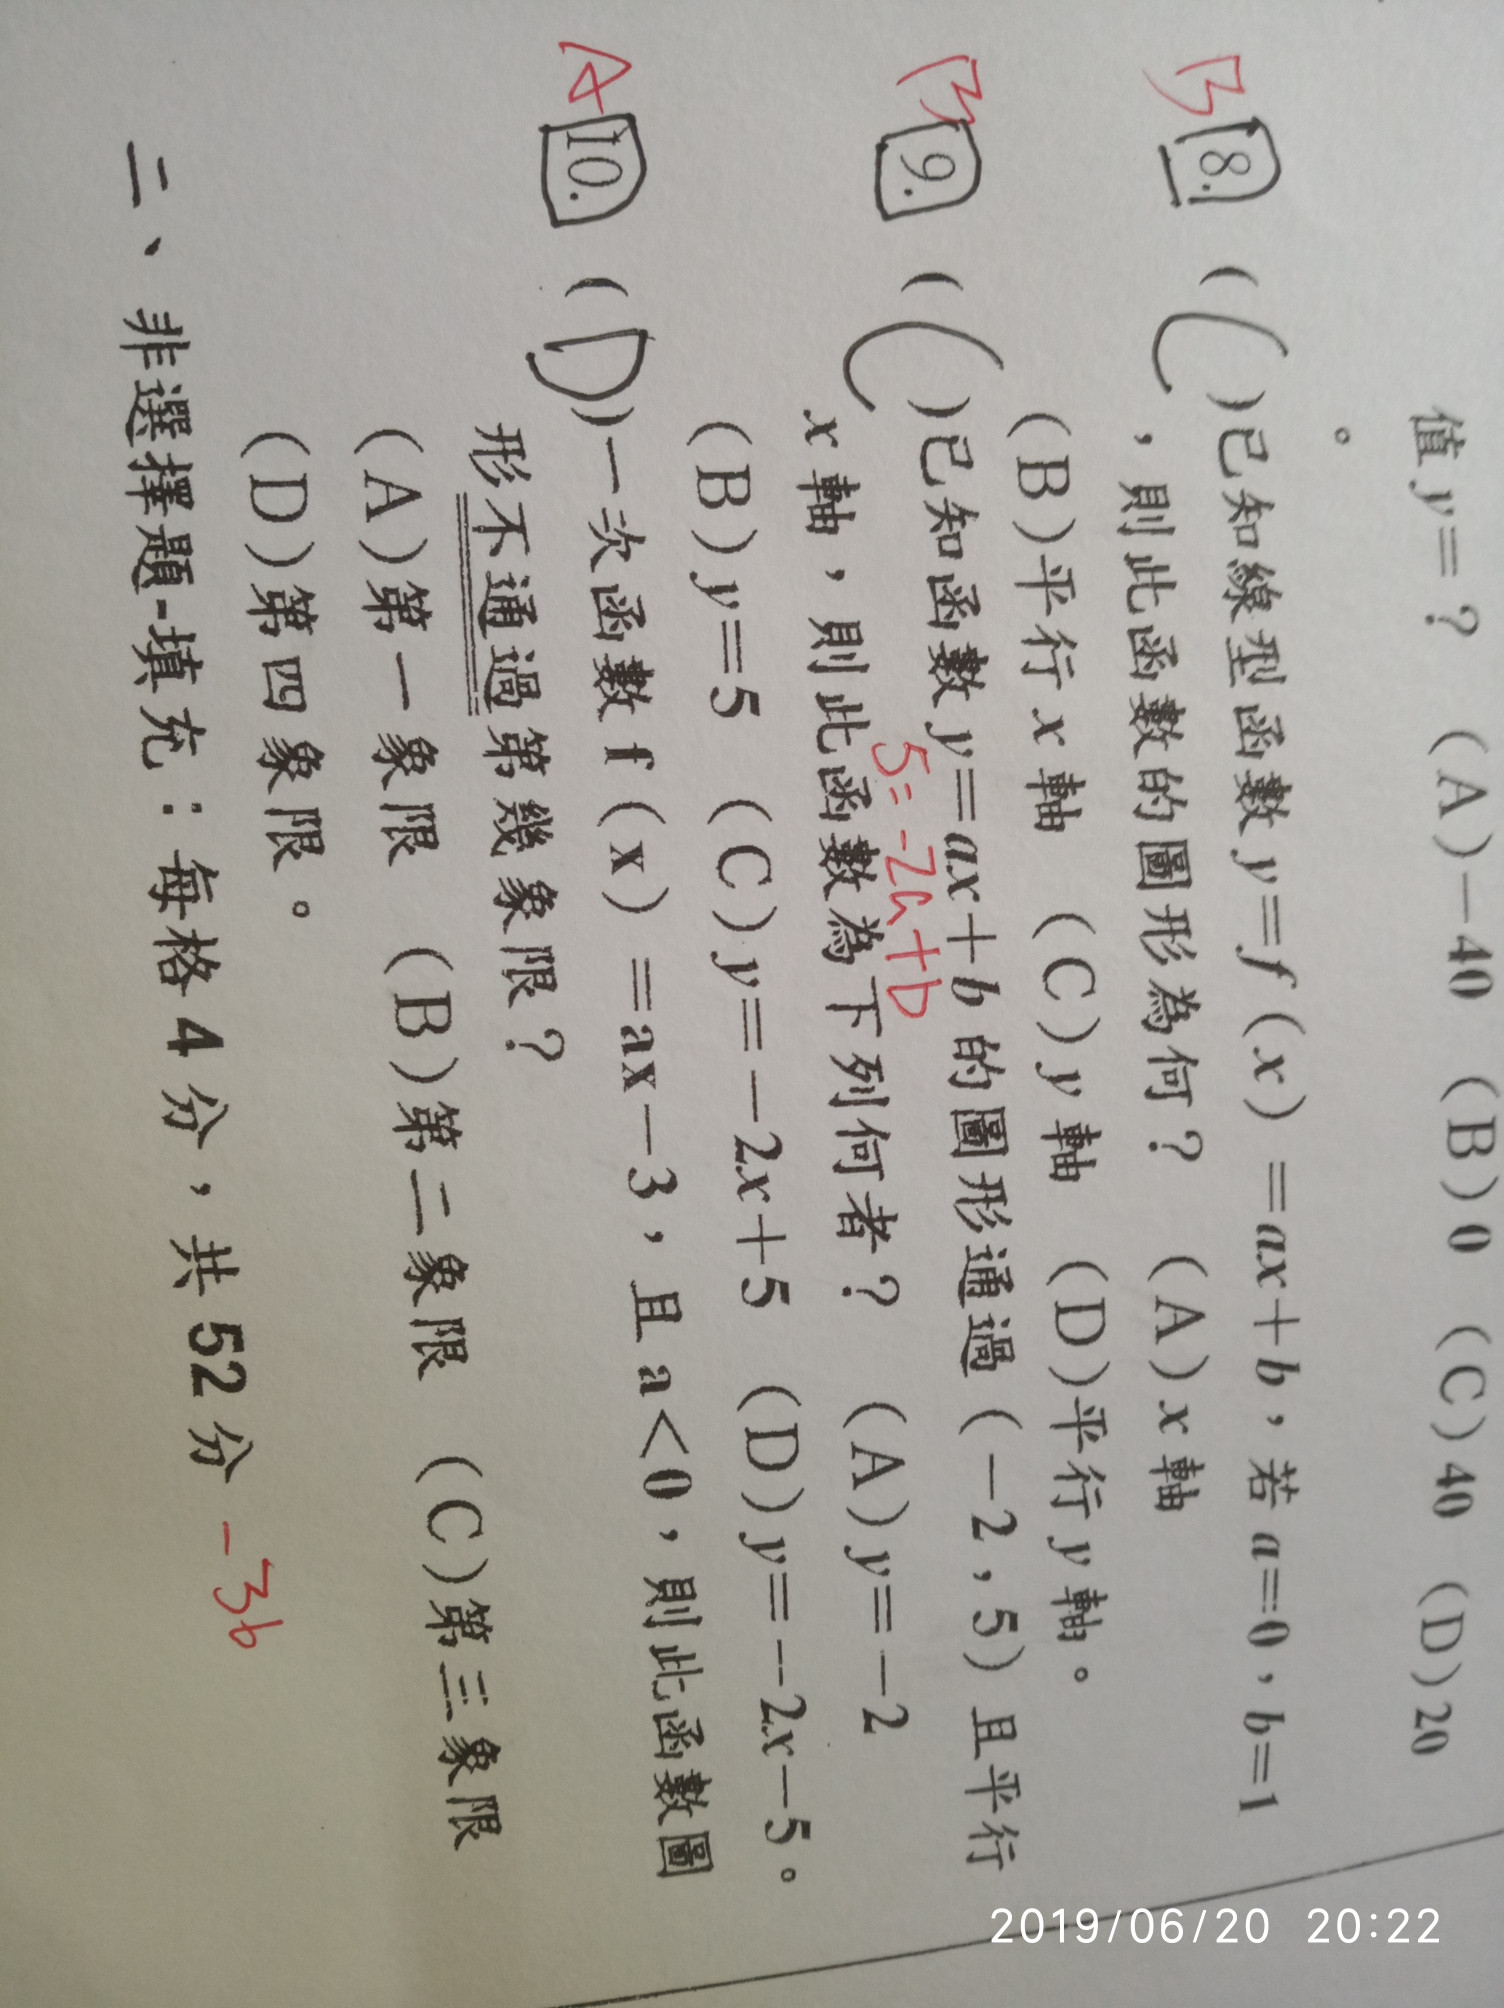 值y=？ (A)-40 (B)0 (C)40 (D)20
。
B 8. ( C )已知線型函數y=f(x)=ax+b，若a=0，b=1
，則此函數的圖形為何？ (A)x軸
(B)平行x軸 (C)y軸 (D)平行y軸。
B 9. ( C )已知函數y=ax+b的圖形通過(-2,5)且平行
5=-2a+b
x軸，則此函數為下列何者？ (A)y=-2
(B)y=5 (C)y=-2x+5 (D)y=-2x-5。
A 10. ( D )一次函數f(x)=ax-3，且a<0，則此函數圖
形不通過第幾象限？
(A)第一象限 (B)第二象限 (C)第三象限
(D)第四象限。
二、非選擇題-填充：每格4分，共52分 -36
2019/06/20 20:22